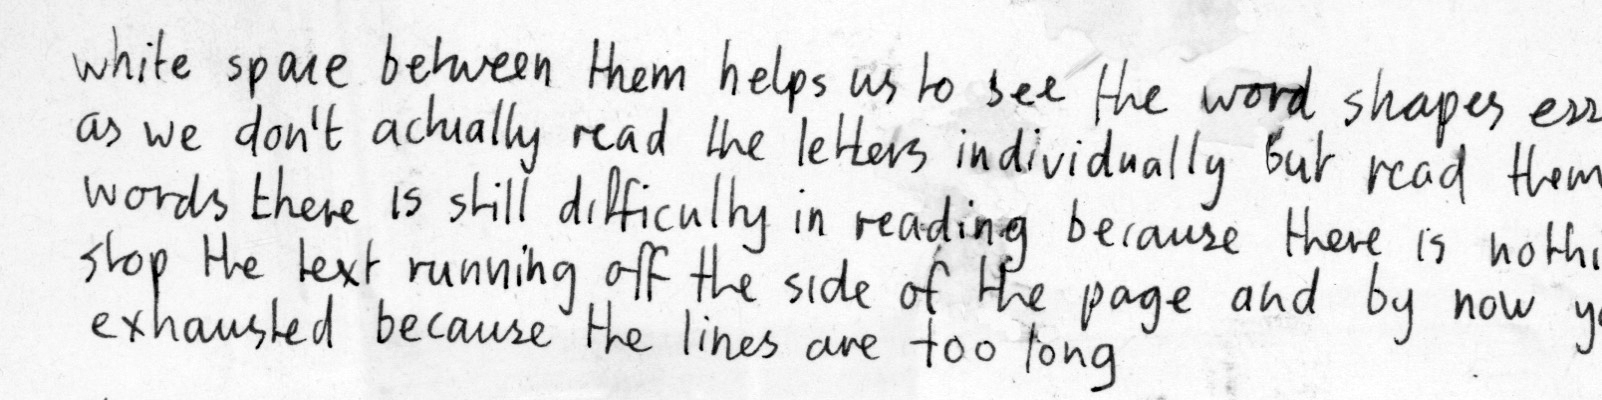 white space between them helps us to see the word shapes
as we don't actually read the letters individually but read them
words there is still difficulty in reading because there is
stop the text running off the side of the page and by now
exhausted because the lines are too long